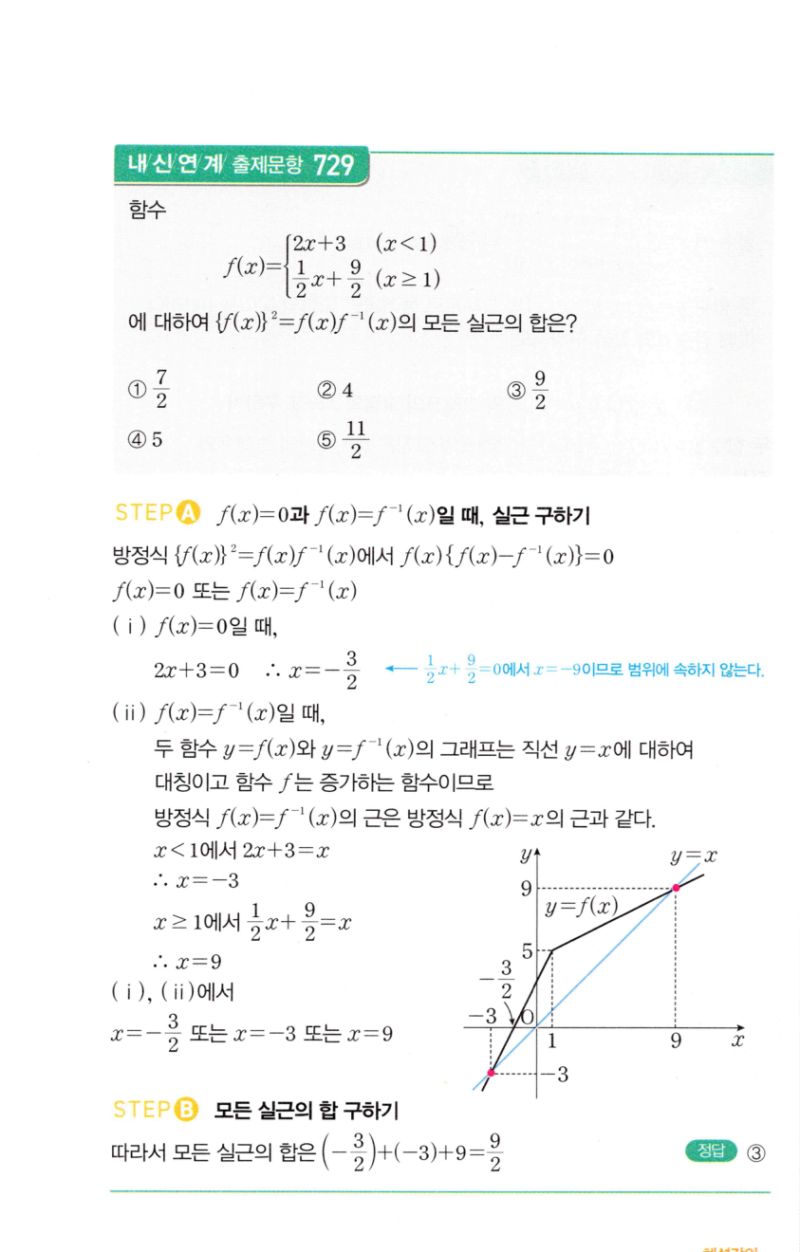 내신연계 출제문항 729
함수
f(x)={2x+3 (x<1)
1/2x+9/2 (x≥1)
에 대하여 {f(x)}²=f(x)f⁻¹(x)의 모든 실근의 합은?
① 7/2 ② 4 ③ 9/2
④ 5 ⑤ 11/2
STEP A f(x)=0과 f(x)=f⁻¹(x)일 때, 실근 구하기
방정식 {f(x)}²=f(x)f⁻¹(x)에서 f(x){f(x)-f⁻¹(x)}=0
f(x)=0 또는 f(x)=f⁻¹(x)
(ⅰ) f(x)=0일 때,
2x+3=0 ∴ x=-3/2 ← 1/2x+9/2=0에서 x=-9이므로 범위에 속하지 않는다.
(ⅱ) f(x)=f⁻¹(x)일 때,
두 함수 y=f(x)와 y=f⁻¹(x)의 그래프는 직선 y=x에 대하여
대칭이고 함수 f는 증가하는 함수이므로
방정식 f(x)=f⁻¹(x)의 근은 방정식 f(x)=x의 근과 같다.
x<1에서 2x+3=x
∴ x=-3
x≥1에서 1/2x+9/2=x
∴ x=9
(ⅰ), (ⅱ)에서
x=-3/2 또는 x=-3 또는 x=9
y y=x
9
y=f(x)
5
-3/2
-3 O 1 9 x
-3
STEP B 모든 실근의 합 구하기
따라서 모든 실근의 합은 (-3/2)+(-3)+9=9/2 정답 ③